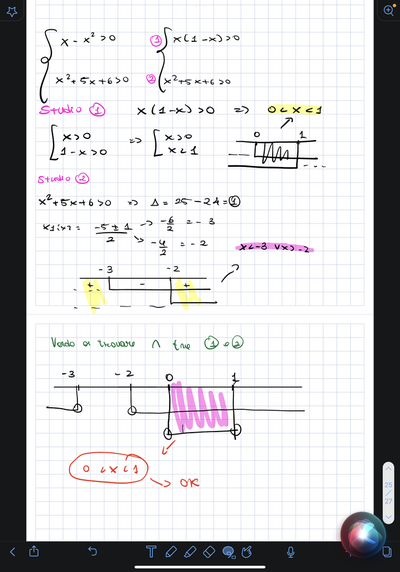 x - x² > 0 ① x(1-x) > 0
x² + 5x + 6 > 0 ② x² + 5x + 6 > 0
Studio ① x(1-x) > 0 => 0 < x < 1
x > 0 => x > 0
1 - x > 0 x < 1
0 1
Studio ②
x² + 5x + 6 > 0 => Δ = 25 - 24 = 1
x1/x2 = -5 ± 1 / 2 -> -6/2 = -3
-> -4/2 = -2
x < -3 ∨ x > -2
-3 -2
+ - +
Vado a trovare ∩ tra ① e ②
-3 -2 0 1
0 < x < 1
-> OK
25
27
T